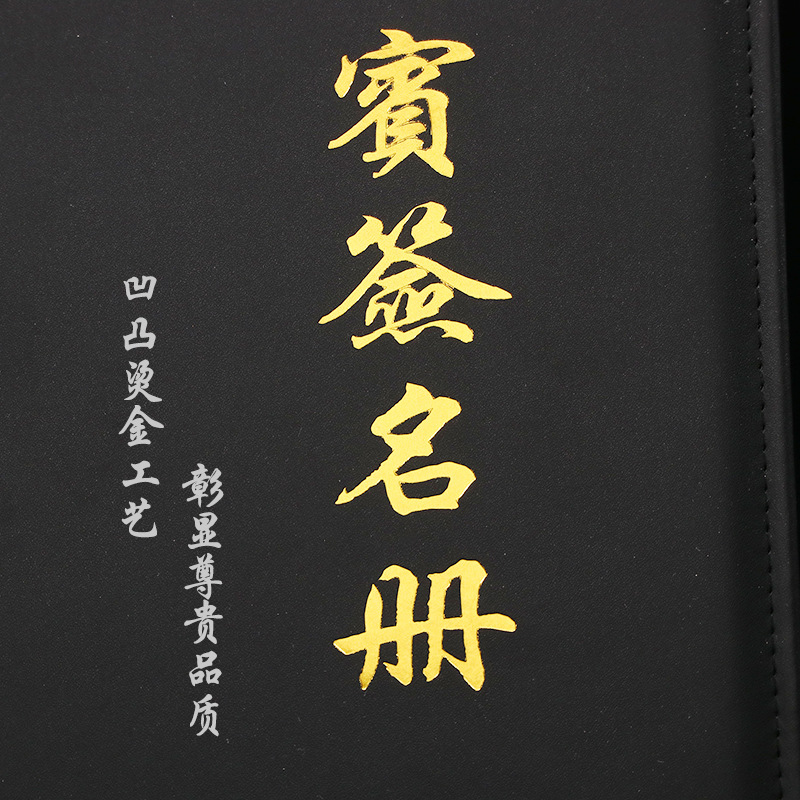 賓签名册
凹凸烫金工艺
彰显尊贵品质